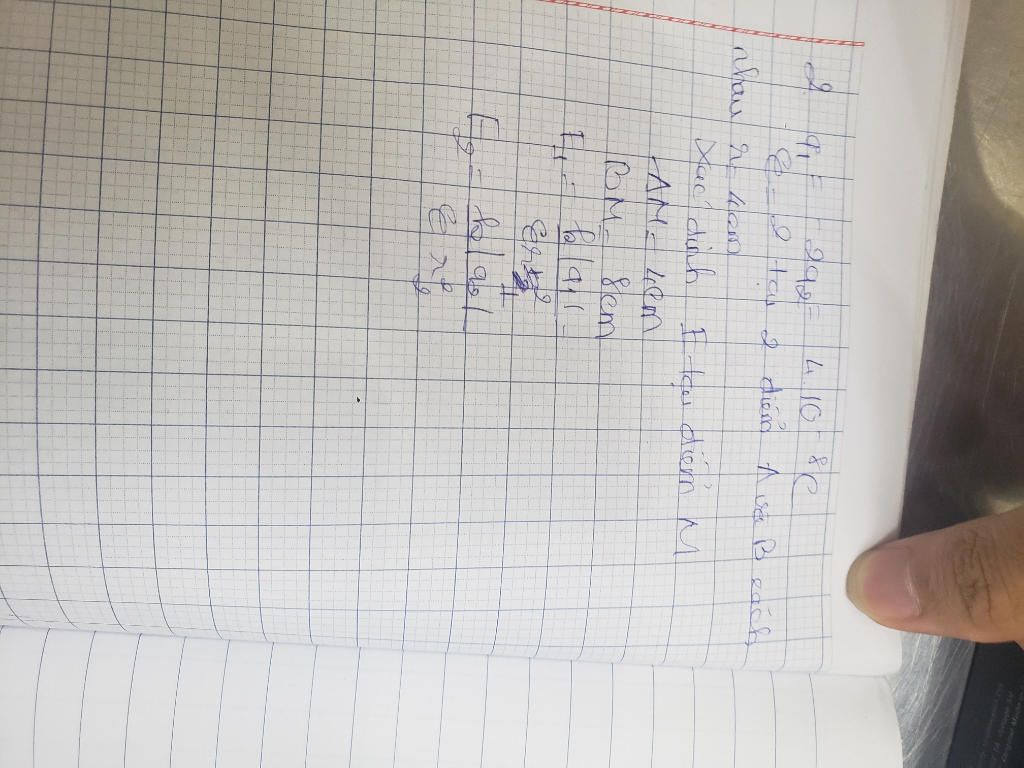 2. q₁ = -2q₂ = 4.10⁻⁸C
ε = 2 tại 2 điểm A và B cách
nhau r = 4cm
Xác định E tại điểm M
AM = 4cm
BM = 8cm
E₁ = k|q₁| / εr₁² =
E₂ = k|q₂| / εr₂²